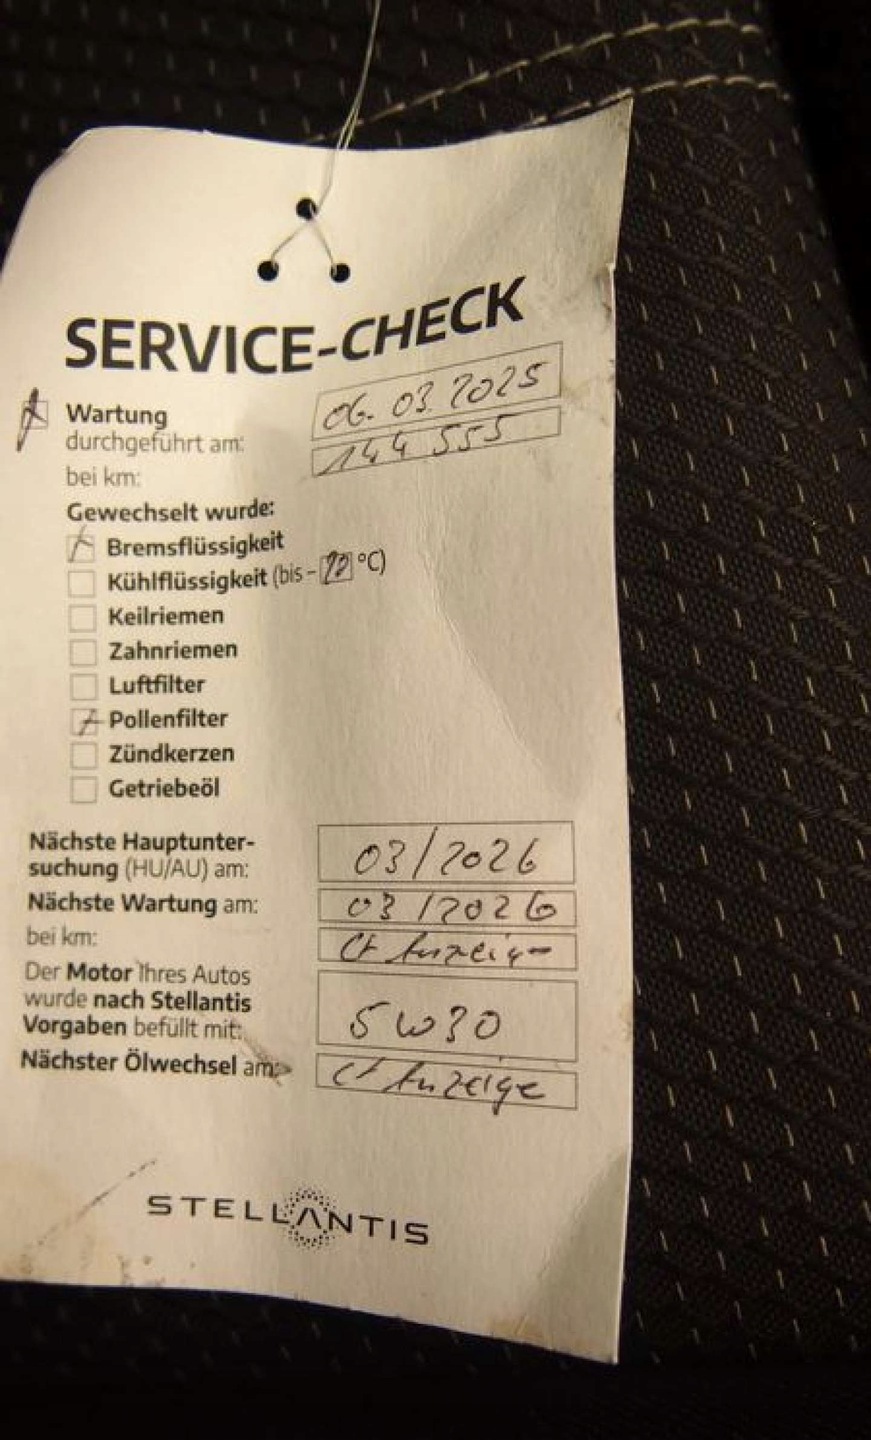 SERVICE-CHECK
Wartung
durchgeführt am: 06.03.2025
bei km: 144 555
Gewechselt wurde:
Bremsflüssigkeit
Kühlflüssigkeit (bis - °C)
Keilriemen
Zahnriemen
Luftfilter
Pollenfilter
Zündkerzen
Getriebeöl
Nächste Hauptunter-
suchung (HU/AU) am: 03/2026
Nächste Wartung am: 03/2026
bei km: Anzeige
Der Motor Ihres Autos
wurde nach Stellantis
Vorgaben befüllt mit: 5W30
Nächster Ölwechsel am: Anzeige
STELLANTIS